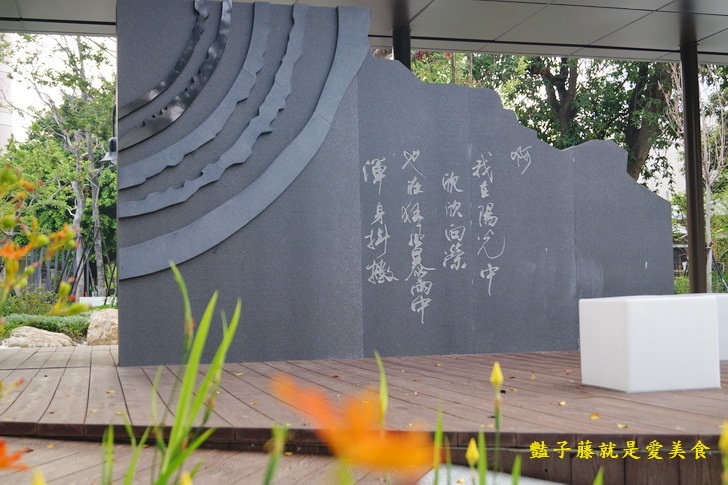 啊
我在陽光中
欣欣向榮
也在狂風暴雨中
渾身抖擻
豔子藤就是愛美食